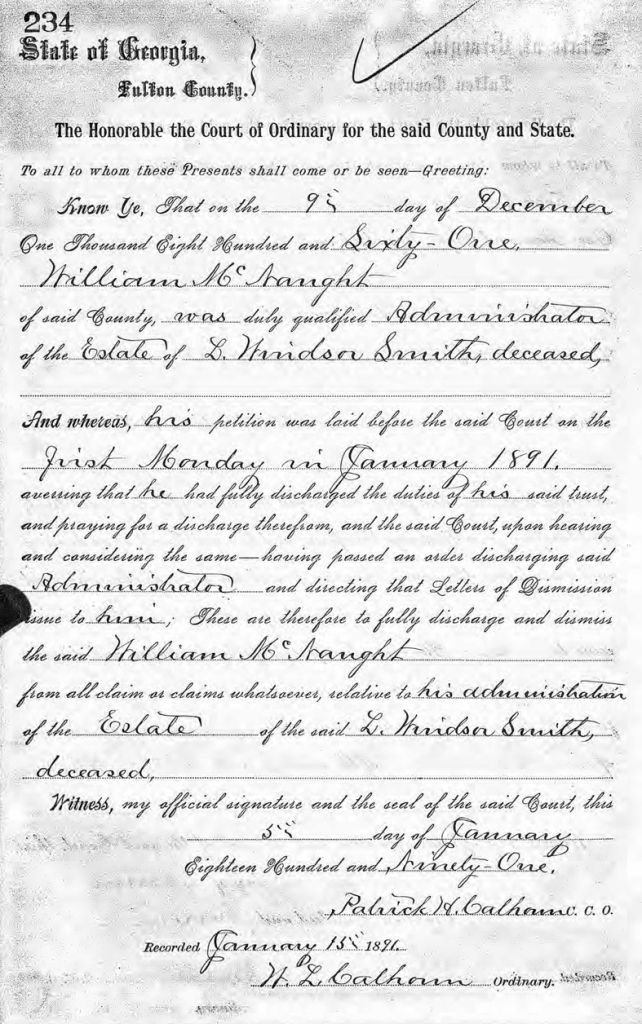 234
State of Georgia,
Fulton County.
The Honorable the Court of Ordinary for the said County and State.
To all to whom these Presents shall come or be seen—Greeting:
Know Ye, That on the 9th day of December
One Thousand Eight Hundred and Sixty-One,
William McNaught
of said County, was duly qualified Administrator
of the Estate of L. Windsor Smith, deceased,
And whereas, his petition was laid before the said Court on the
first Monday in January 1891.
averring that he had fully discharged the duties of his said trust,
and praying for a discharge therefrom, and the said Court, upon hearing
and considering the same—having passed an order discharging said
Administrator and directing that Letters of Dismission
issue to him; These are therefore to fully discharge and dismiss
the said William McNaught
from all claim or claims whatsoever, relative to his administration
of the Estate of the said L. Windsor Smith,
deceased,
Witness, my official signature and the seal of the said Court, this
5th day of January
Eighteen Hundred and Ninety-One.
Patrick H. Calhoun C. C. O.
Recorded January 15th 1891.
W. L. Calhoun Ordinary.